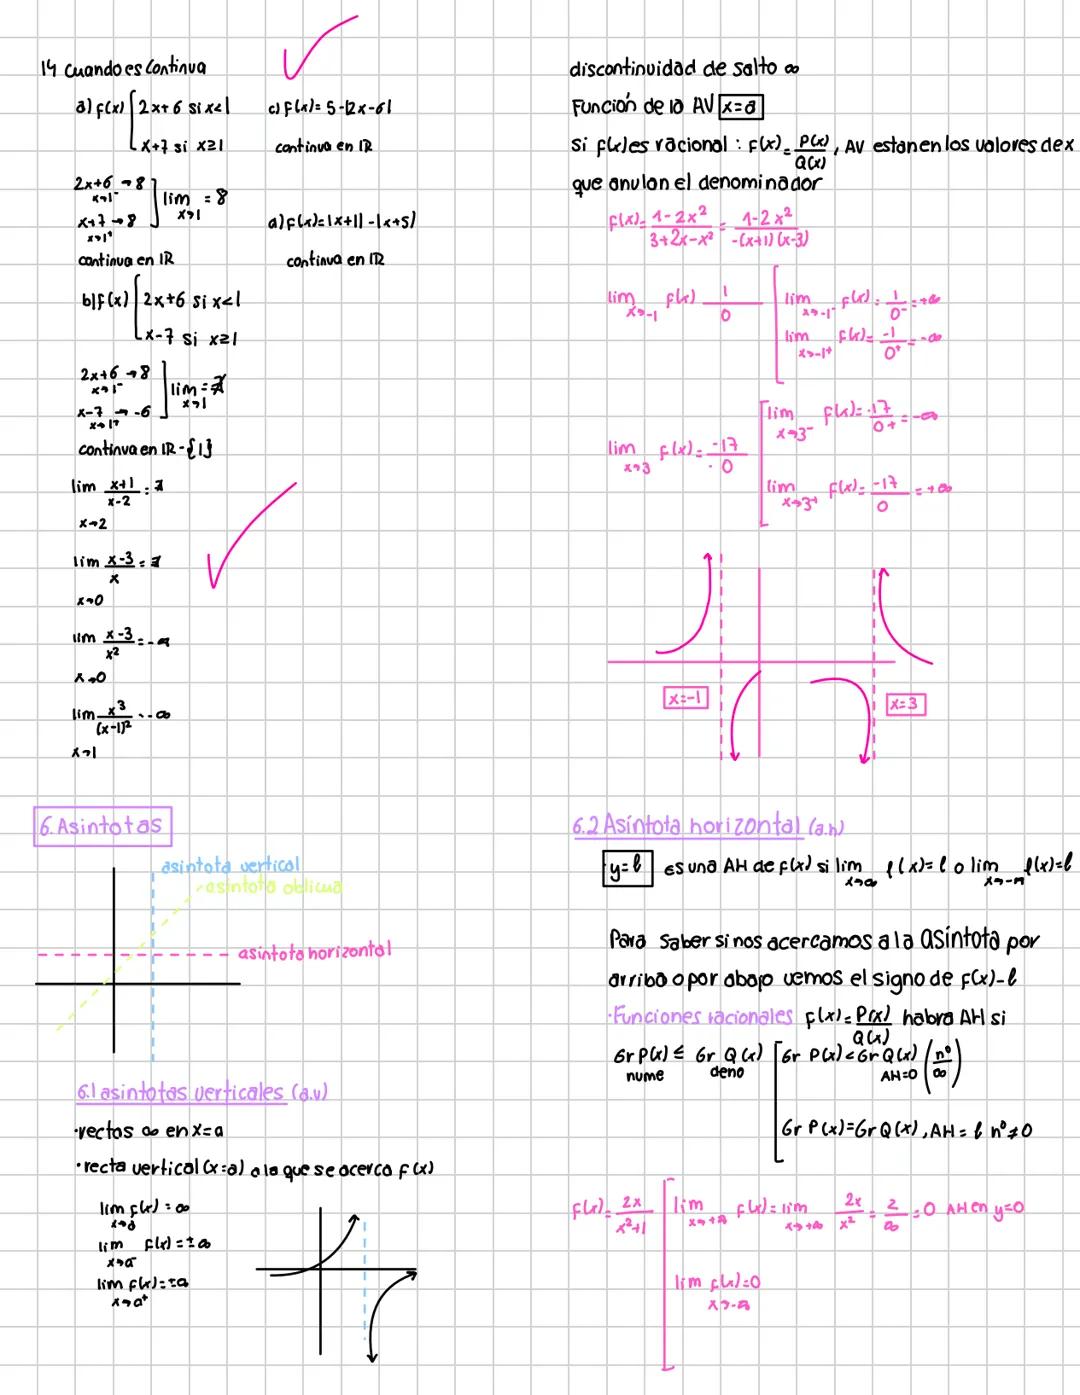 14 Cuando es Continua
a) f(x) { 2x+6 si x<1
x+7 si x≥1
2x+6 → 8
x→1⁻
x+7 → 8
x→1⁺
lim = 8
x→1
continua en IR
c) f(x)= 5-|2x-6|
continua en IR
a) f(x)=|x+1|-|x+5|
continua en IR
b) f(x) { 2x+6 si x<1
x-7 si x≥1
2x+6 → 8
x→1⁻
x-7 → -6
x→1⁺
lim = ∄
x→1
continua en IR-{1}
lim (x+1)/(x-2) = ∄
x→2
lim (x-3)/x = ∄
x→0
lim (x-3)/x² = -∞
x→0
lim x³/(x-1)² = ∞
x→1
discontinuidad de salto ∞
Función de la AV x=a
si f(x) es racional : f(x)= P(x)/Q(x), AV estan en los valores de x
que anulan el denominador
f(x)= (1-2x²)/(3+2x-x²) = (1-2x²)/(-(x+1)(x-3))
lim f(x) 1/0
x→-1
lim f(x)= 1/0⁻ =+∞
x→-1⁻
lim f(x)= -1/0⁺ =-∞
x→-1⁺
lim f(x)= -17/0
x→3
lim f(x)= -17/0+ =-∞
x→3⁻
lim f(x)= -17/0 =+∞
x→3⁺
x=-1
x=3
6. Asintotas
asintota vertical
asintota oblicua
asintota horizontal
6.1 asintotas verticales (a.v)
·rectas ∞ en x=a
·recta vertical (x=a) a la que se acerca f(x)
lim f(x) = ∞
x→a
lim f(x) = ±∞
x→a⁻
lim f(x) = ±∞
x→a⁺
6.2 Asíntota horizontal (a.h)
y=l es una AH de f(x) si lim f(x)= l o lim f(x)=l
x→∞ x→-∞
Para saber si nos acercamos a la asíntota por
arriba o por abajo vemos el signo de f(x)-l
·Funciones racionales f(x)= P(x)/Q(x) habra AH si
Gr P(x) ≤ Gr Q(x)
nume deno
Gr P(x)<Gr Q(x) (nº/∞)
AH=0
Gr P(x)=Gr Q(x), AH= l nº≠0
f(x)= 2x/(x²+1)
lim f(x)= lim 2x/x² = 2/∞ =0 AH en y=0
x→+∞ x→+∞
lim f(x)=0
x→-∞